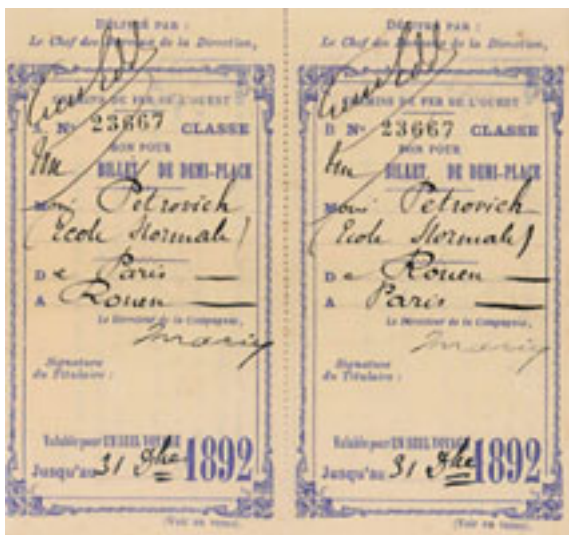 DÉLIVRÉ PAR :
Le Chef des de la Direction,
CHEMINS DE FER DE L'OUEST
A No 23667 CLASSE
BON POUR
Un BILLET DE DEMI-PLACE
Petrovich
(Ecole Normale)
De Paris
A Rouen
Le Directeur de la Compagnie,
Signature
du Titulaire :
Valable pour UN SEUL VOYAGE
Jusqu'au 31 9bre 1892
(Voir au verso)
DÉLIVRÉ PAR :
Le Chef des de la Direction,
CHEMINS DE FER DE L'OUEST
B No 23667 CLASSE
BON POUR
Un BILLET DE DEMI-PLACE
Petrovich
(Ecole Normale)
De Rouen
A Paris
Le Directeur de la Compagnie,
Signature
du Titulaire :
Valable pour UN SEUL VOYAGE
Jusqu'au 31 9bre 1892
(Voir au verso)